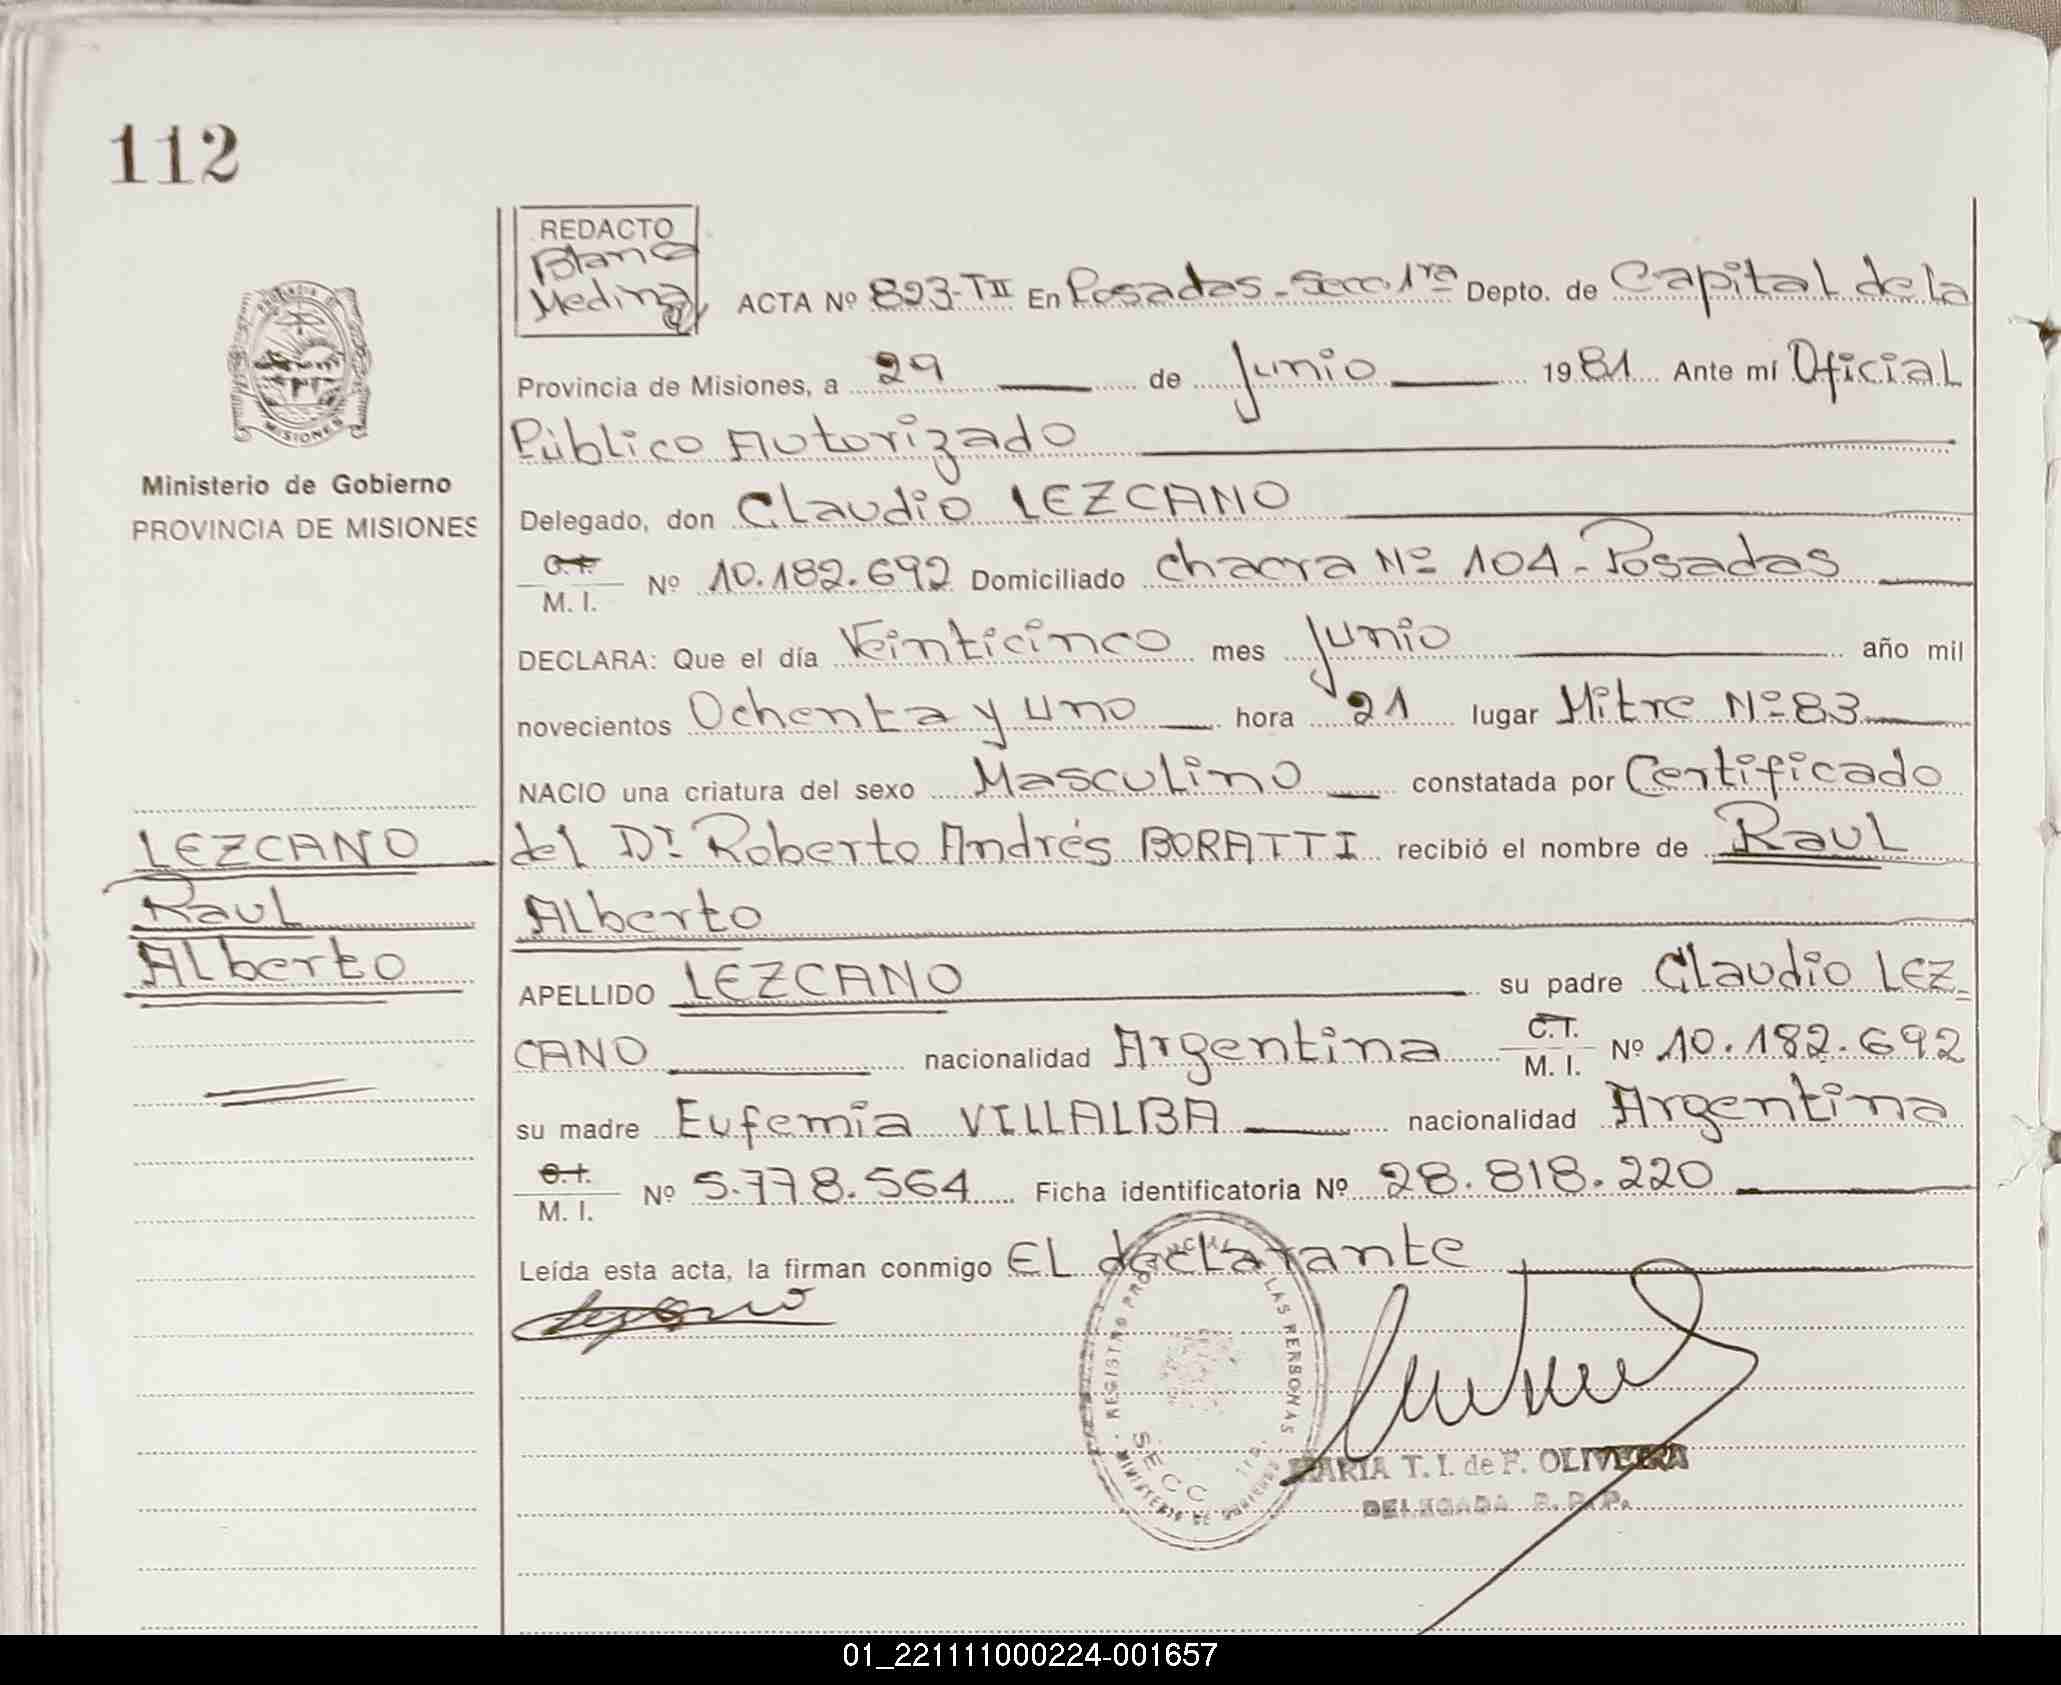 112
REDACTO
Blanca
Medina
ACTA Nº 823-TII En Posadas-Secc 1ra Depto. de Capital de la
Provincia de Misiones, a 29 de Junio 1981 Ante mí Oficial
Público Autorizado
Ministerio de Gobierno
PROVINCIA DE MISIONES
Delegado, don Claudio LEZCANO
C.I. M. I. Nº 10.182.692 Domiciliado Chacra Nº 104-Posadas
DECLARA: Que el día Veinticinco mes Junio año mil
novecientos Ochenta y uno hora 21 lugar Mitre Nº 83
NACIO una criatura del sexo Masculino constatada por Certificado
del Dr. Roberto Andrés BORATTI recibió el nombre de Raul
Alberto
LEZCANO
Raul
Alberto
APELLIDO LEZCANO su padre Claudio LEZ=
CANO nacionalidad Argentina C.I. M. I. Nº 10.182.692
su madre Eufemia VILLALBA nacionalidad Argentina
C.I. M. I. Nº 5.778.564 Ficha identificatoria Nº 28.818.220
Leída esta acta, la firman conmigo El declarante
REGISTRO LAS PERSONAS
SECC
MARIA T. I. de F. OLIVEIRA
DELEGADA R. P. P.
MISIONES
01_221111000224-001657